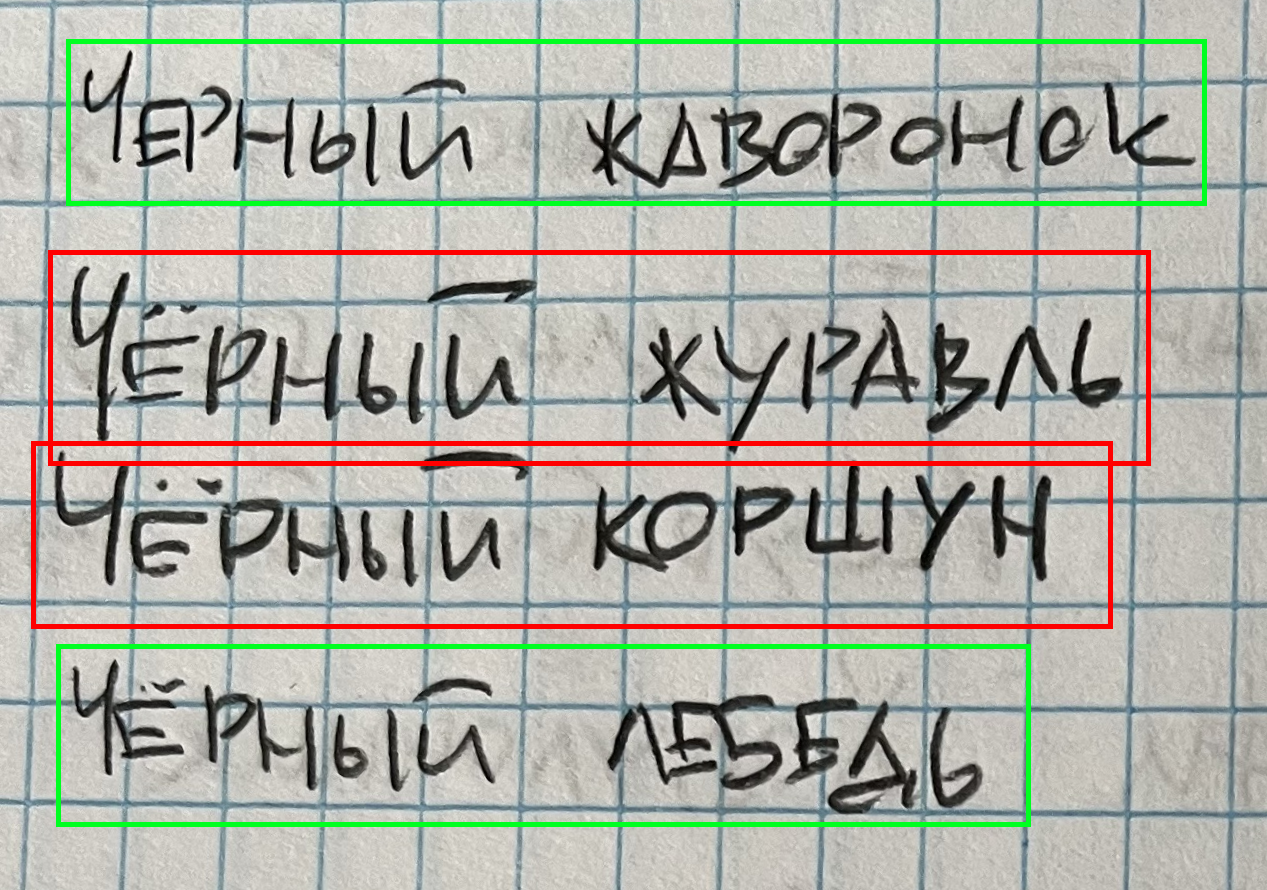 ЧЕРНЫЙ ЖАВОРОНОК
ЧЁРНЫЙ ЖУРАВЛЬ
ЧЁРНЫЙ КОРШУН
ЧЁРНЫЙ ЛЕБЕДЬ